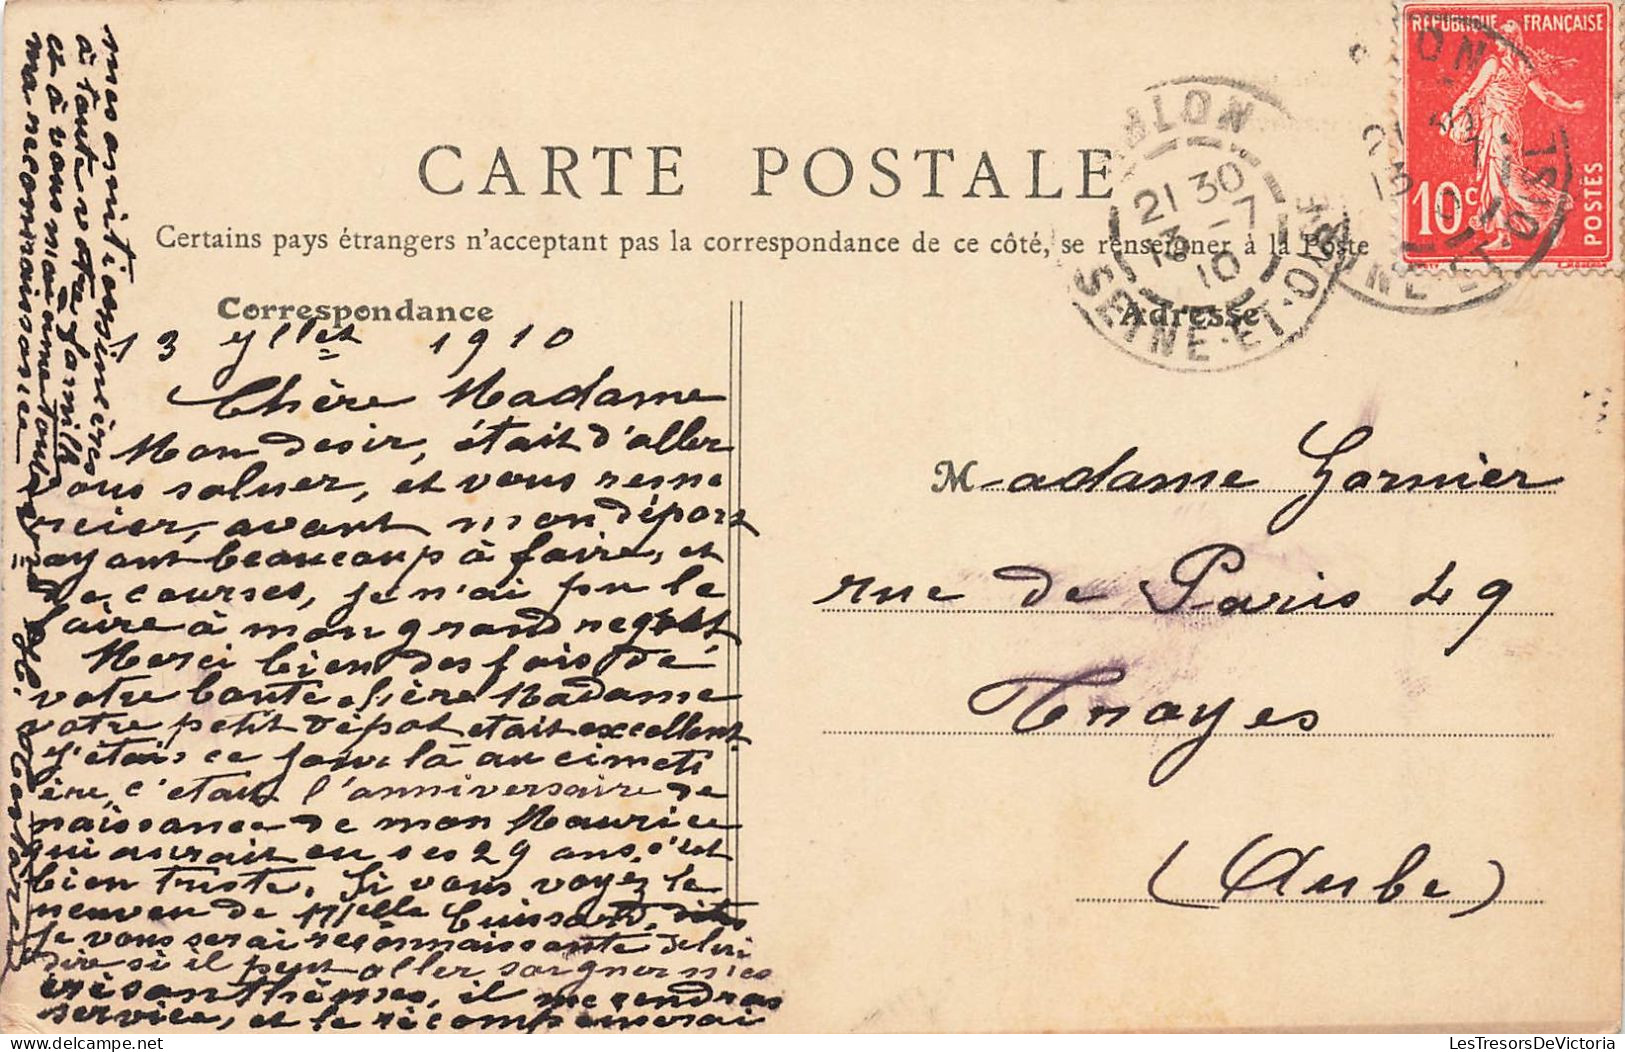 CARTE POSTALE
Certains pays étrangers n'acceptant pas la correspondance de ce côté, se renseigner à la Poste
Correspondance
Adresse
RÉPUBLIQUE FRANÇAISE
10c
POSTES
ABLON
21 30
13 -7
10
SEINE-ET-OISE
13 Jllet 1910
Chère Madame
Mon desir, était d'aller
vous saluer, et vous reme
rcier, avant mon départ
ayant beaucoup à faire, et
de courses, je n'ai pu le
faire à mon grand regret
Merci bien des fois de
votre bonté chère Madame
votre petit dépot etait excellent
J'étais ce jour là au cimeti
ère, c'etait l'anniversaire de
naissance de mon Maurice
qui aurait eu ses 29 ans, c'est
bien triste. Si vous voyez le
neuveu de Melle Cuissard,
je vous serai reconnaissante de lui
dire si il peut aller soigner mes
crisanthèmes, il me rendras
service, et le récompenserai
mes amitiés sincères
à toute votre famille
et à vous mon âme toute
ma reconnaissance
Madame Garnier
rue de Paris 49
Troyes
(Aube)
LesTresorsDeVictoria